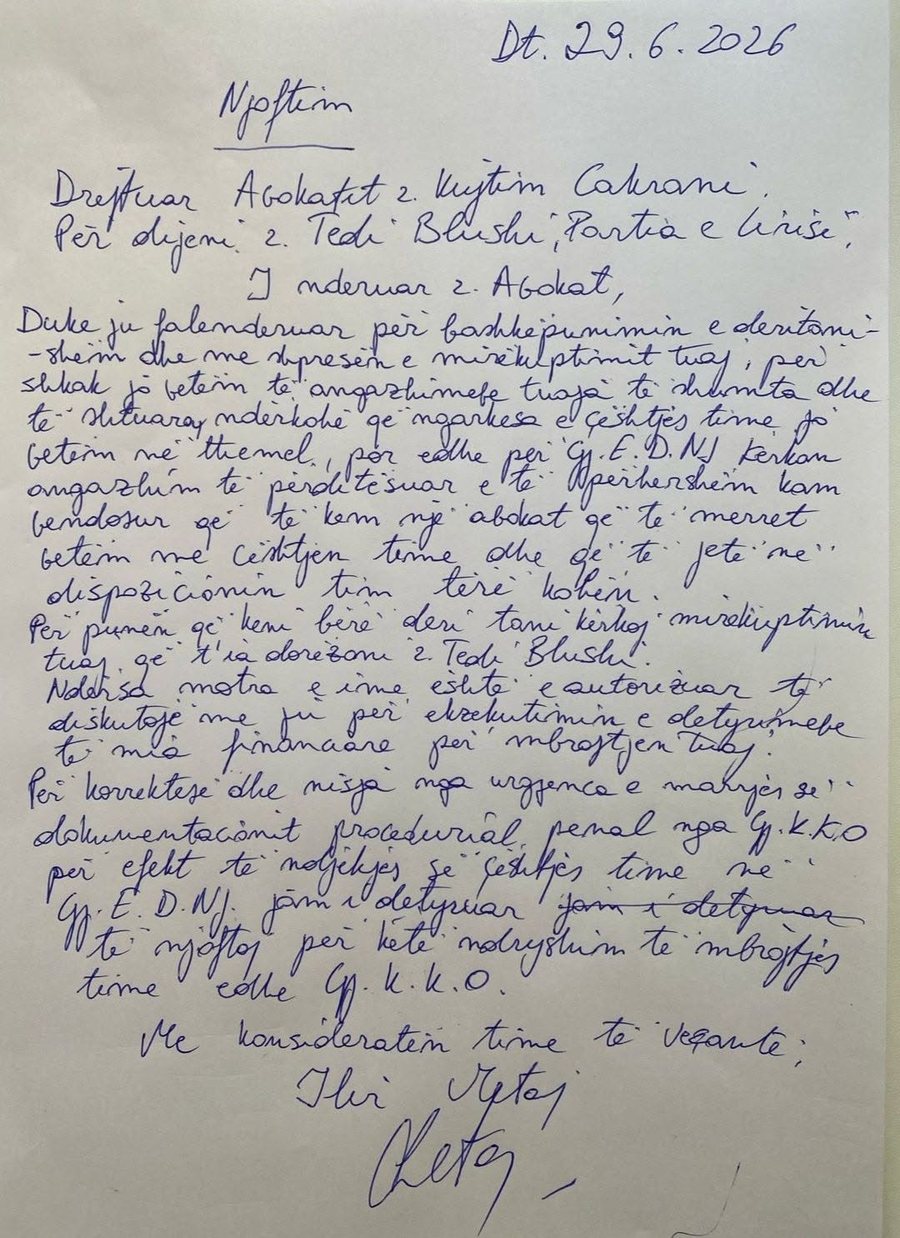 Dt. 29.6.2026
Njoftim
Drejtuar Avokatit z. Kujtim Cakrani.
Për dijeni z. Tedi Blushi, "Partia e Lirisë".
I nderuar z. Avokat,
Duke ju falenderuar për bashkëpunimin e deritani-
-shëm dhe me shpresën e mirëkuptimit tuaj, për
shkak jo vetëm të angazhimeve tuaja të shumta dhe
të shtuara, ndërkohë që ngarkesa e çështjes time jo
vetëm në themel, por edhe për Gj.E.D.NJ kërkon
angazhim të përditësuar e të përhershëm kam
vendosur që të kem një avokat që të merret
vetëm me çështjen time dhe që të jetë në
dispozicionin tim tërë kohën.
Për punën që keni bërë deri tani kërkoj mirëkuptimin
tuaj që t'ia dorëzoni z. Tedi Blushi.
Ndërsa motra e ime është e autorizuar të
diskutojë me ju për ekzekutimin e detyrimeve
të mia financiare për mbrojtjen tuaj.
Për korrektesë dhe nisja nga urgjenca e marrjes së
dokumentacionit procedurial penal nga Gj.K.K.O
për efekt të ndjekjes së çështjes time në
Gj.E.D.NJ. jam i detyruar jam i detyruar
të njoftoj për këtë ndryshim të mbrojtjes
time edhe Gj.K.K.O.
Me konsideratën time të veçantë,
Ilir Metaj